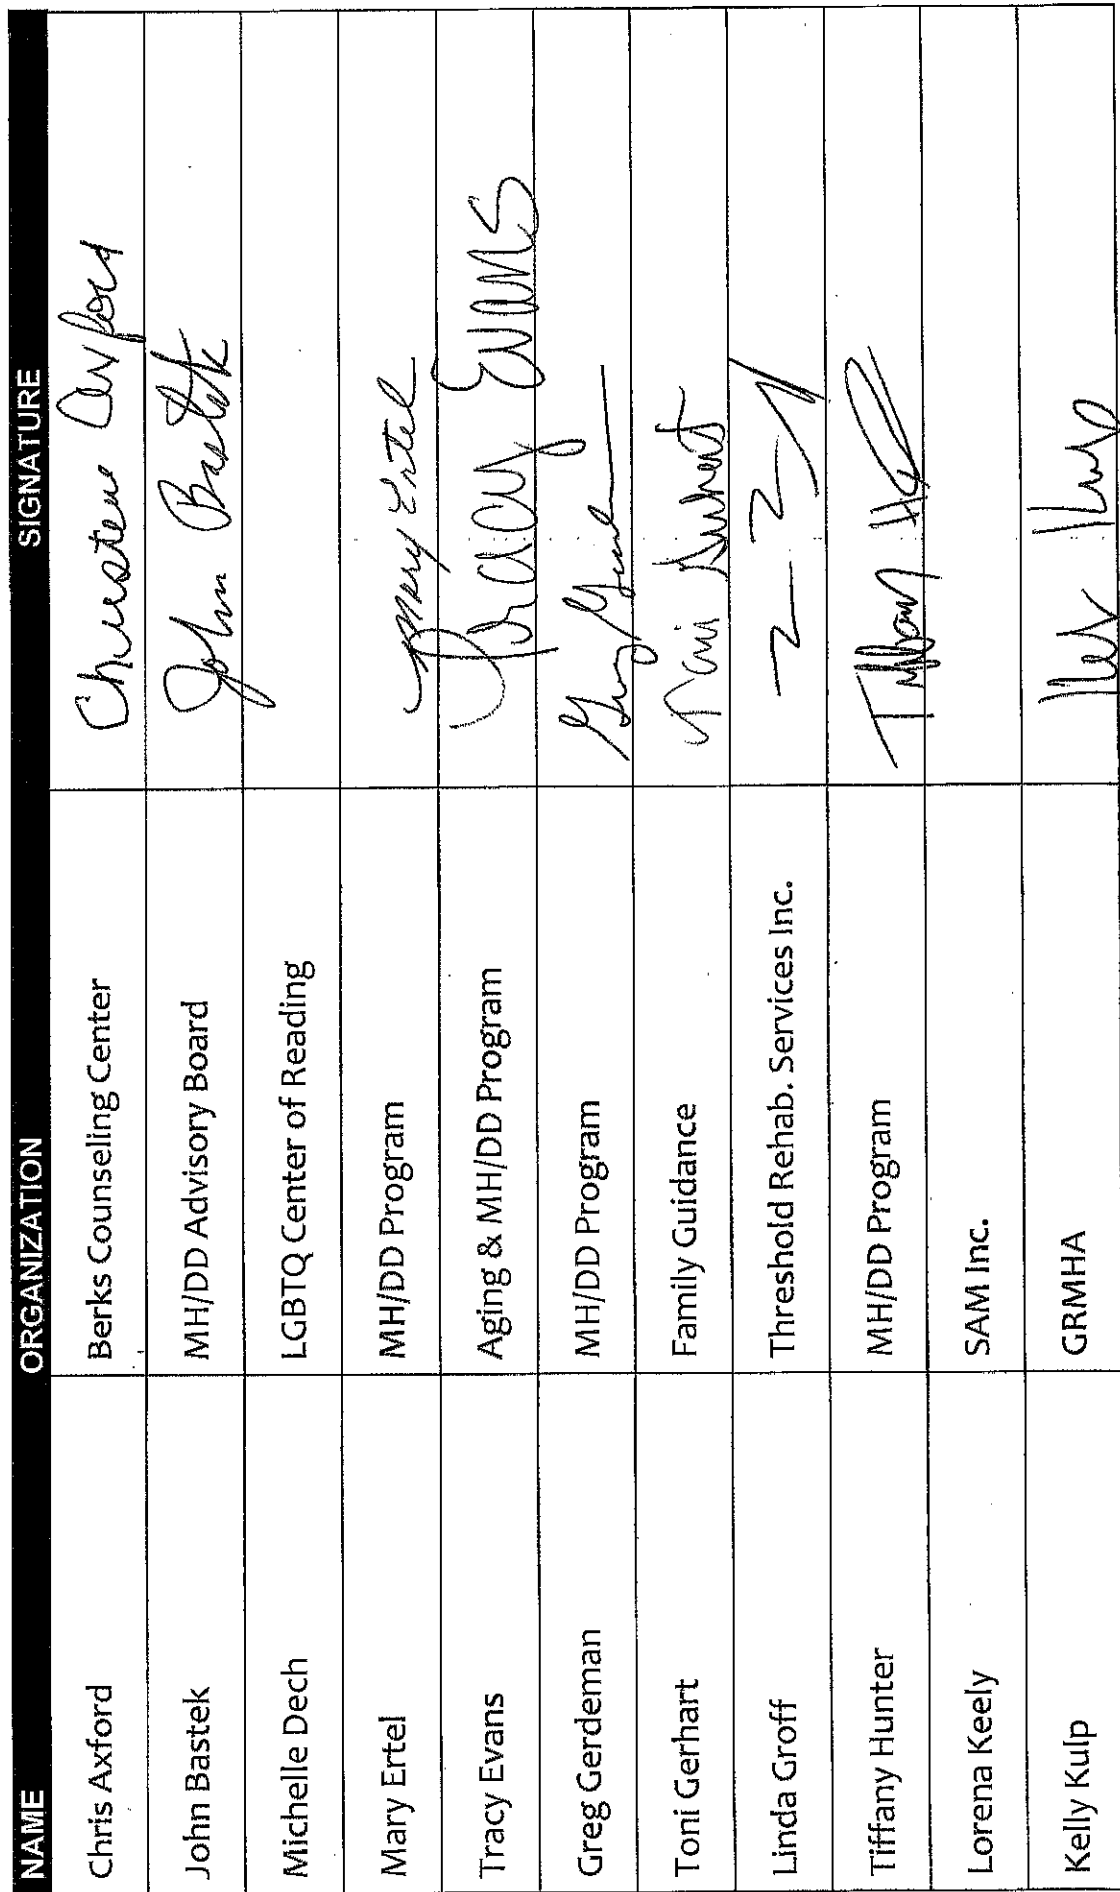 NAME ORGANIZATION SIGNATURE
Chris Axford Berks Counseling Center Christine Axford
John Bastek MH/DD Advisory Board John Bastek
Michelle Dech LGBTQ Center of Reading
Mary Ertel MH/DD Program Mary Ertel
Tracy Evans Aging & MH/DD Program Tracy Evans
Greg Gerdeman MH/DD Program
Toni Gerhart Family Guidance Toni Gerhart
Linda Groff Threshold Rehab. Services Inc.
Tiffany Hunter MH/DD Program
Lorena Keely SAM Inc.
Kelly Kulp GRMHA